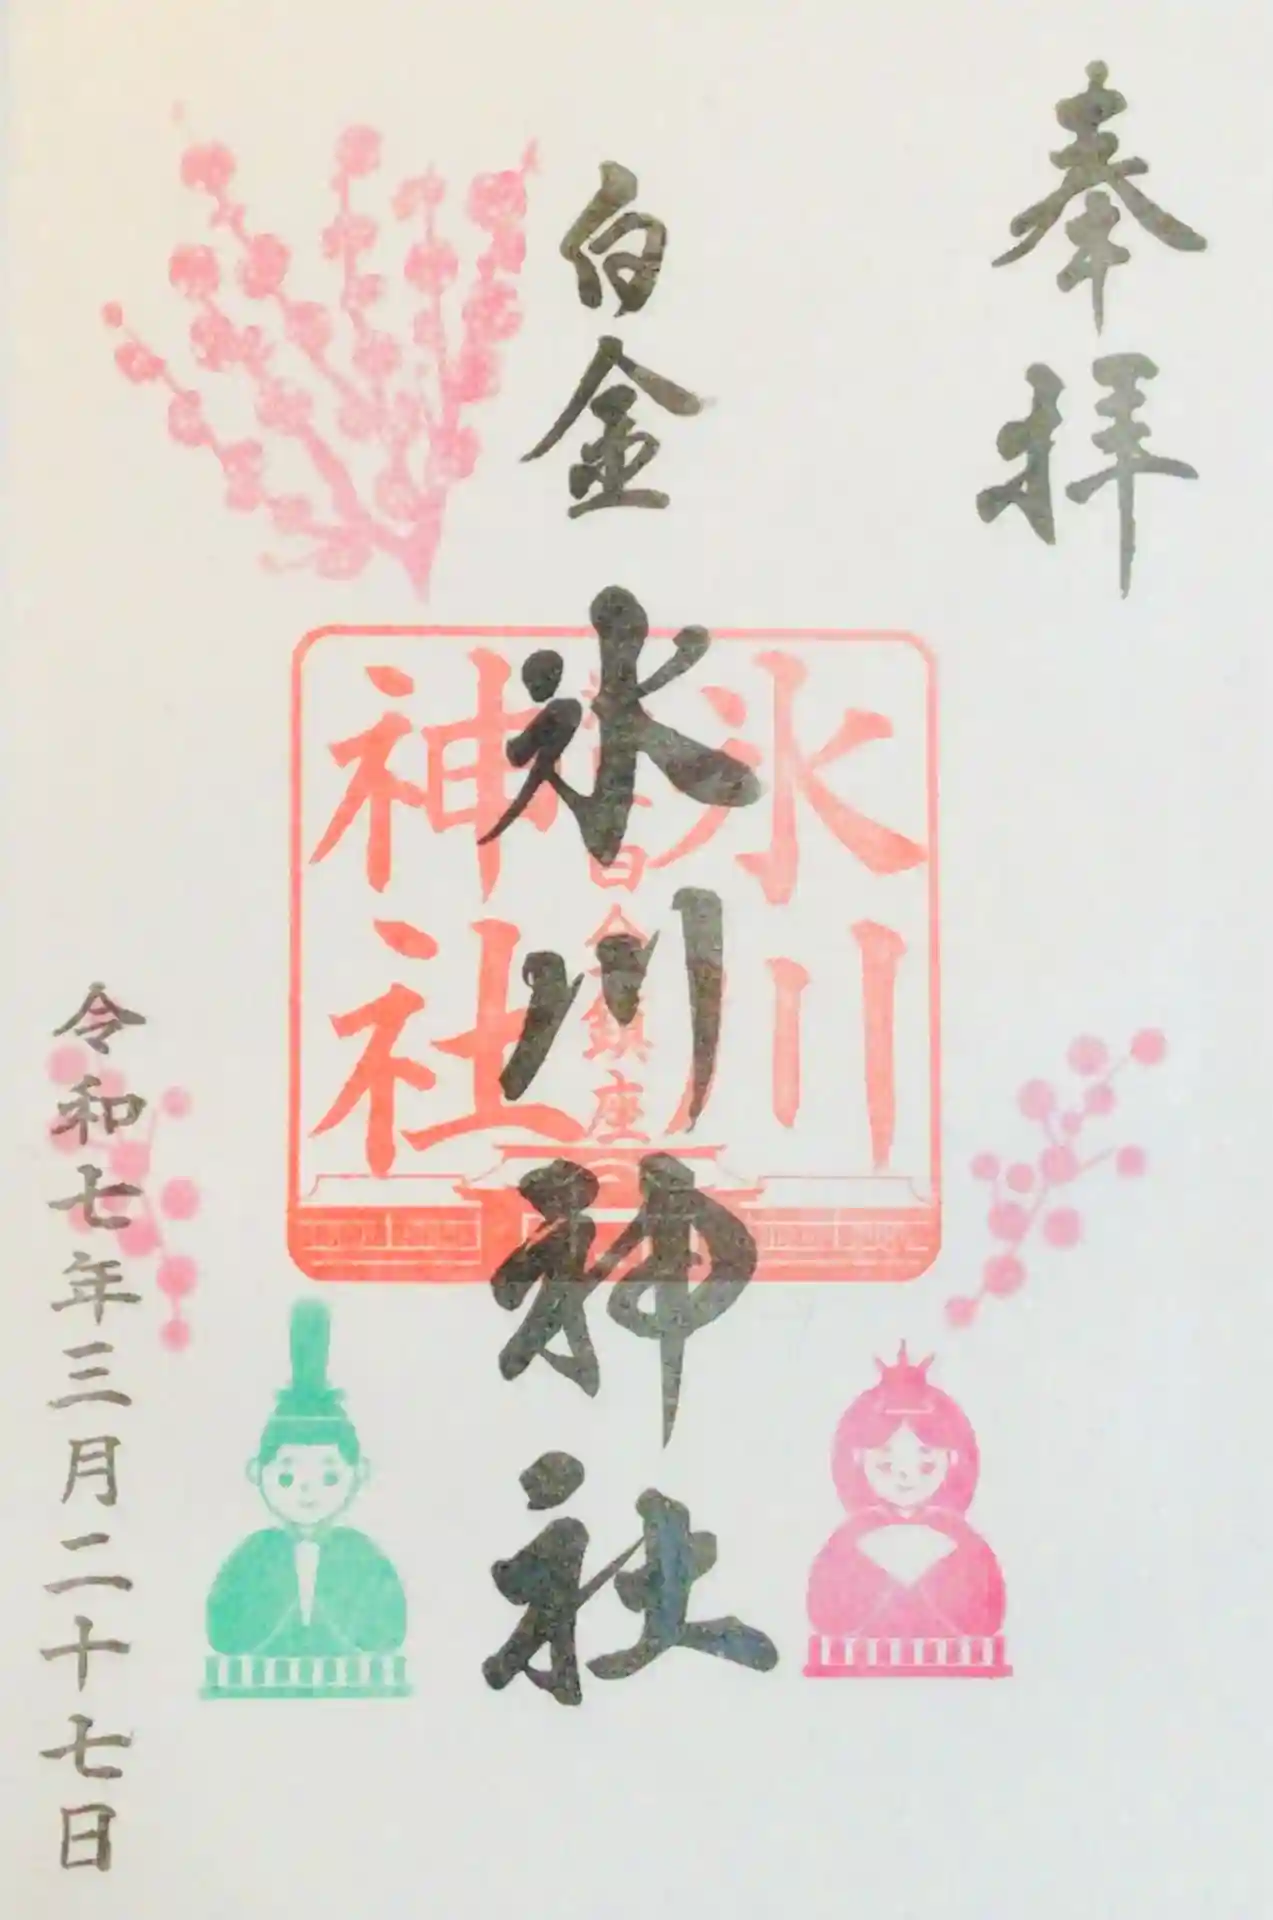 奉拝
白金
氷川神社
氷川
白金鎮座
神社
令和七年三月二十七日